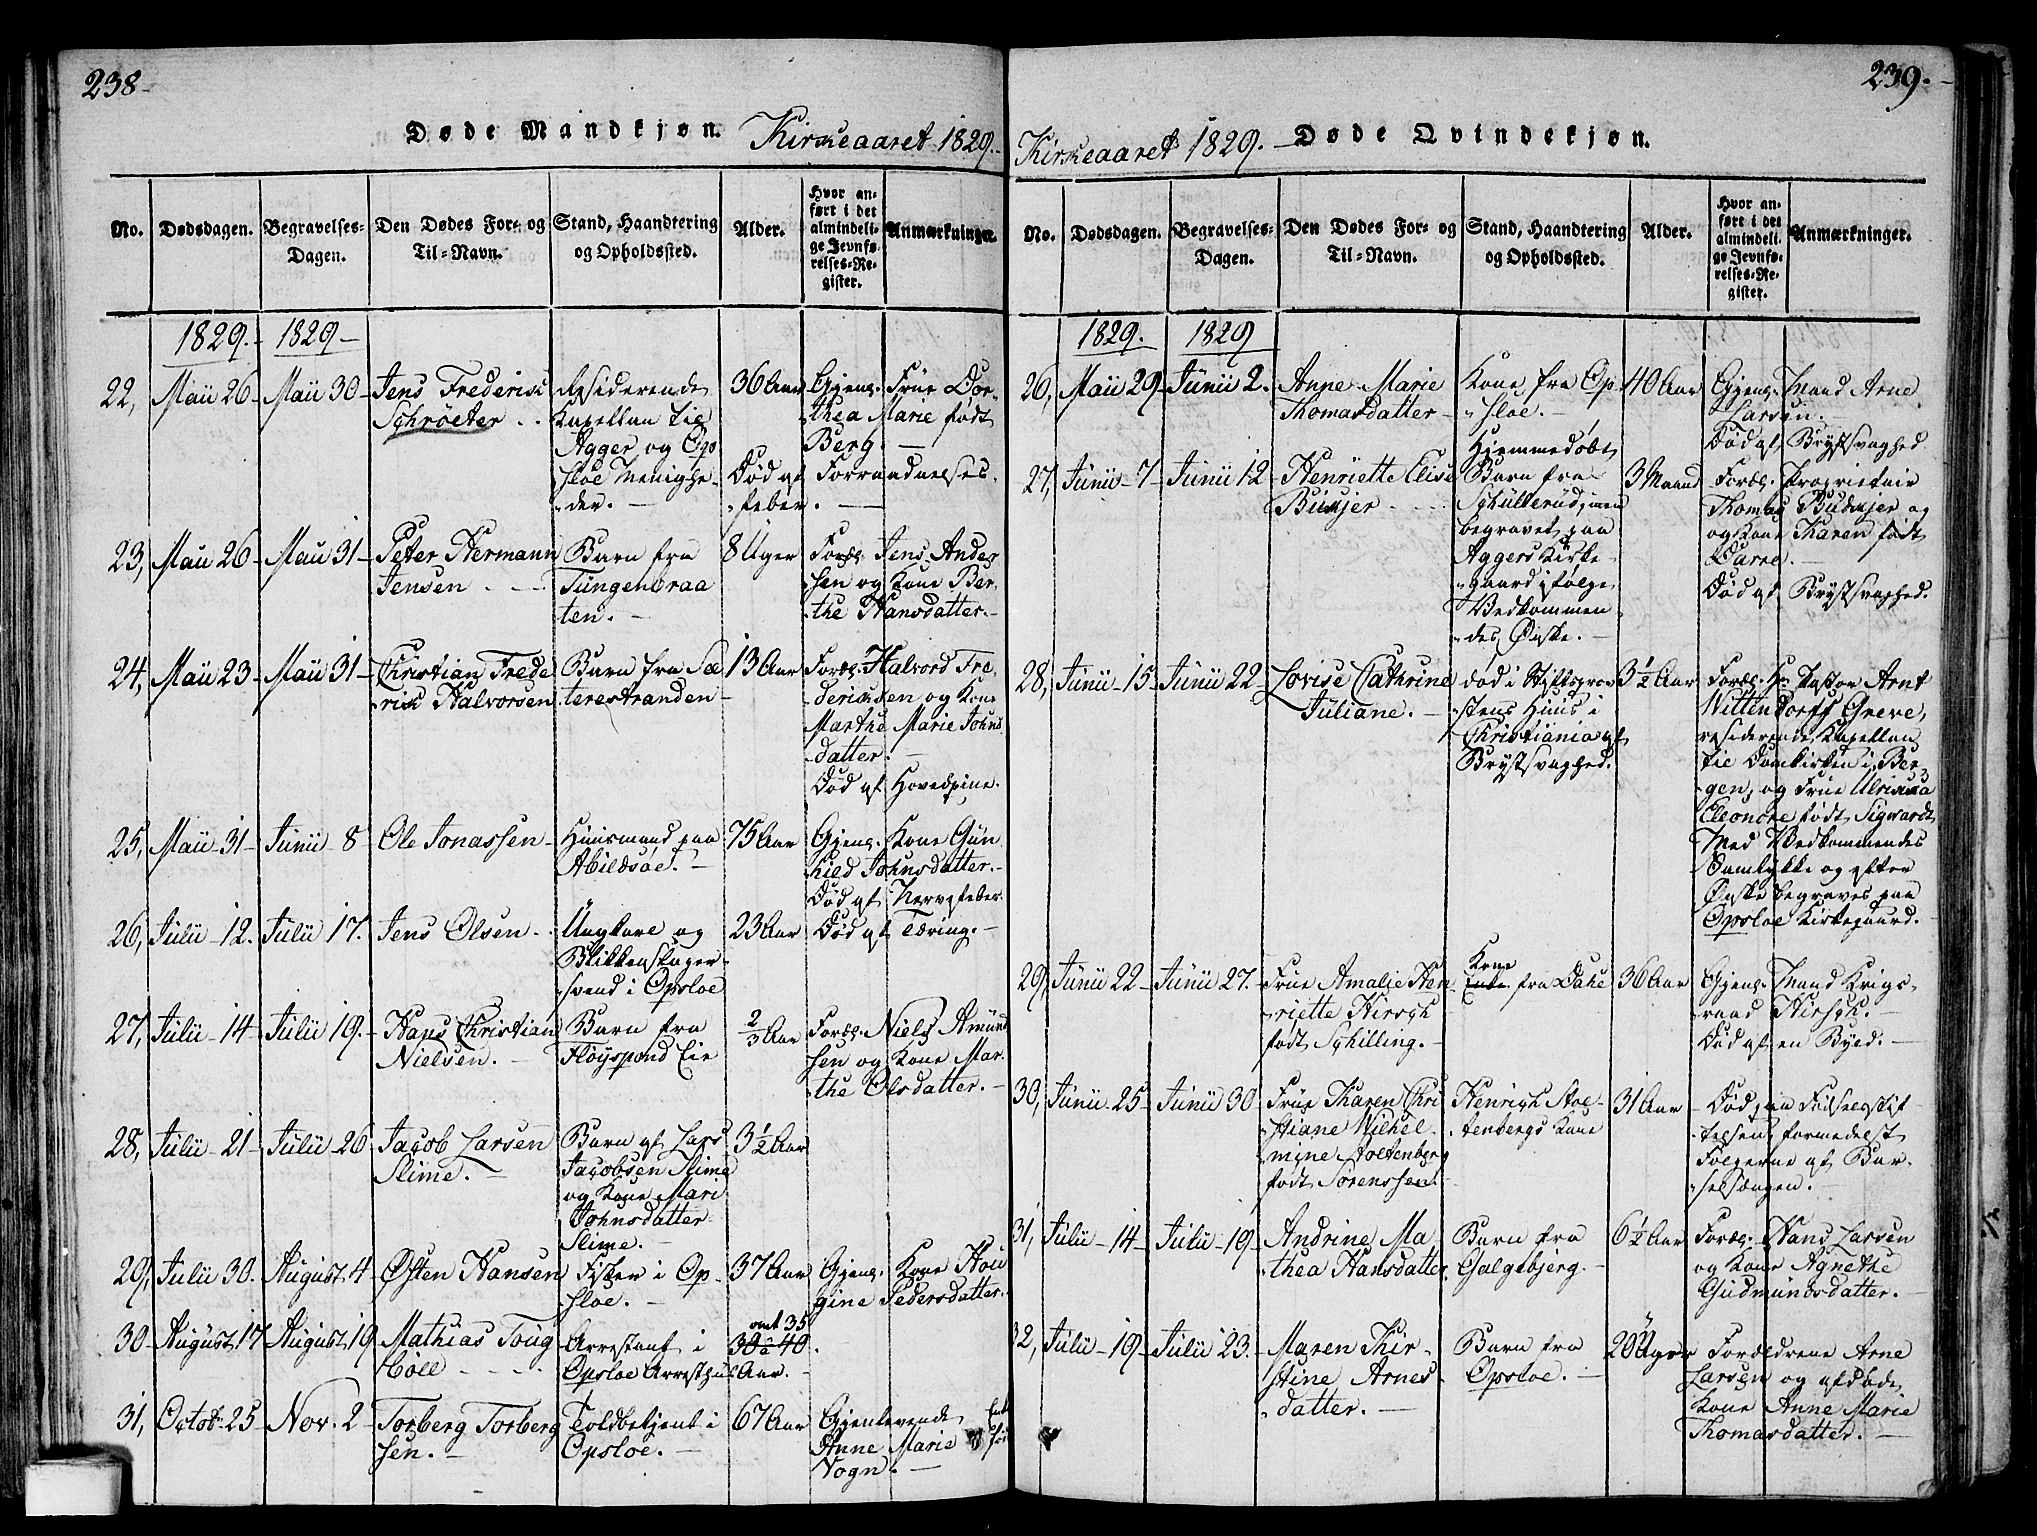 238-
Døde Mandkjøn. Kirkeaaret 1829.
No.
Dødsdagen.
Begravelses-
Dagen.
Den Dødes For- og
Til-Navn.
Stand, Haandtering
og Opholdssted.
Alder.
Hvor an-
ført i det
almindeli-
ge Jevnfø-
relses-Re-
gister.
Anmærkninger.
1829. 1829
22, Maii 26 Maii 30
Jens Frederik
Schrøeter
Residerende
Kapellan til
Agger og Op
sloe Menighe-
der.
36 Aar
Gjenl. Frue Dor-
thea Marie født
Berg.
Død af Forraadnelses-
feber.
23, Maii 26 Maii 31
Peter Hermann
Jensen
Barn fra
Tungenbraa
ten.
8 Uger
Foræl. Jens Ander
sen og Kone Ber-
the Hansdatter.
24, Maii 23 Maii 31
Christian Frede
rik Halvorsen
Barn fra Sæ
terestranden
13 Aar
Foræl. Halvord Fre-
deriksen og Kone
Marthe Marie Johns
datter.
Død af Hovedpine.
25, Maii 31 Junii 8
Ole Jonassen
Huusmand paa
Abildsøe.
75 Aar
Gjenl. Kone Gun
hild Johnsdatter.
Død af Nervefeber
26, Julii 12. Julii 17.
Jens Olsen
Ungkarl og
Blikkenslager-
svend i Opsloe
23 Aar
Død af Tæring.
27, Julii 14 Julii 19.
Hans Christian
Nielsen.
Barn fra
Fløyspond Eie
2/3 Aar
Foræl. Niels Amund
sen og Kone Mar-
the Olsdatter.
28, Julii 21 Julii 26
Jacob Larsen
Slime.
Barn af Lars
Jacobsen Slime
og Kone Mari
Johnsdatter
Slime.
3 1/2 Aar
29, Julii 30. August 4
Østen Hansen
Fisker i Op-
sloe.
37 Aar
Gjenl. Kone
gine Pedersdatter.
30 August 17 August 19
Mathias Toug
Arrestant i
Opsloe Arresthuus
omt 35
30 à 40
Aar.
31, Octob. 25 Nov. 2
Torberg Torberg
sen.
Toldbetjent i
Opsloe.
67 Aar
Gjenlevende
Anne Marie
Vogn.
239.
Kirkeaaret 1829. Døde Qvindekjøn.
No.
Dødsdagen.
Begravelses-
Dagen.
Den Dødes For- og
Til-Navn.
Stand, Haandtering
og Opholdssted.
Alder.
Hvor an-
ført i det
almindeli-
ge Jevnfø-
relses-Re-
gister.
Anmærkninger.
1829. 1829
26, Maii 29 Junii 2.
Anne Marie
Thomasdatter
Kone fra Op-
sloe.
40 Aar
Gjenl. Mand Arne
Larsen.
Død af Brystsvaghed
27, Junii 7 Junii 12
Henriette Elise
Hjemmedøbt
Barn fra
Schulterud, men
begravet paa
Aggers Kirke-
gaard i følge
Vedkommen
des Ønske.
3 Maand
Foræl. Proprietair
Thomas og
og Kone Karen født
Darre.
Død af Brystsvaghed.
28, Junii 15 Junii 22
Lovise Cathrine
Juliane.
død i Stiftsprov
stens Huus i
Christiania af
Brystsvaghed.
3 1/2 Aar
Foræl. Hr. Pastor Arnt
Wittendorff Greve,
residerende Kapellan
til Domkirken i Ber-
gen, og Frue Ulricka
Eleonore født Sigwardt
Med Vedkommendes
Samtykke og efter
Ønske begraves paa
Opsloe Kirkegaard.
29, Junii 22 Junii 27.
Frue Amalie Hen
riette Hirsch
født Schilling.
Kone
Enke fra Dahl
36 Aar
Gjenl. Mand Krigs-
raad Hirsch.
Død af en Byld.
30, Junii 25 Junii 30
Frue Karen Chri
stiane Wilhel
mine Stoltenberg
født Sørenssen.
Henrich Stol-
tenbergs Kone
31 Aar
Død paa Fødselsstif
telsen, formedelst
Følgerne af Bar-
selsængen.
31, Julii 14 Julii 19
Andrine Ma
thea Hansdatter.
Barn fra
Galgebjerg.
6 1/2 Aar
Foræl. Hans Larsen
og Kone Agnethe
Gudmundsdatter.
32, Julii 19 Julii 23.
Maren Kir-
stine Arnes
datter.
Barn fra
Opsloe.
20 Uger
Forældrene Arne
Larsen og afdøde
Kone Anne Marie
Thomasdatter.